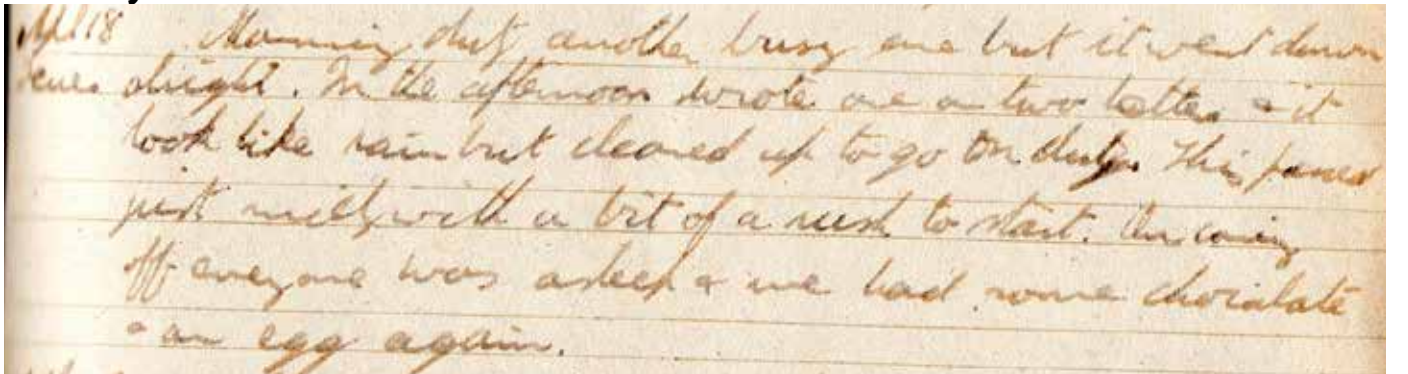 Apl 18 Morning duty another busy one but it went down
alright. In the afternoon wrote one or two letters & it
look like rain but cleared up to go on duty. This passed
just nicely with a bit of a rush to start. On coming
off everyone was asleep & we had some chocolate
& an egg again.